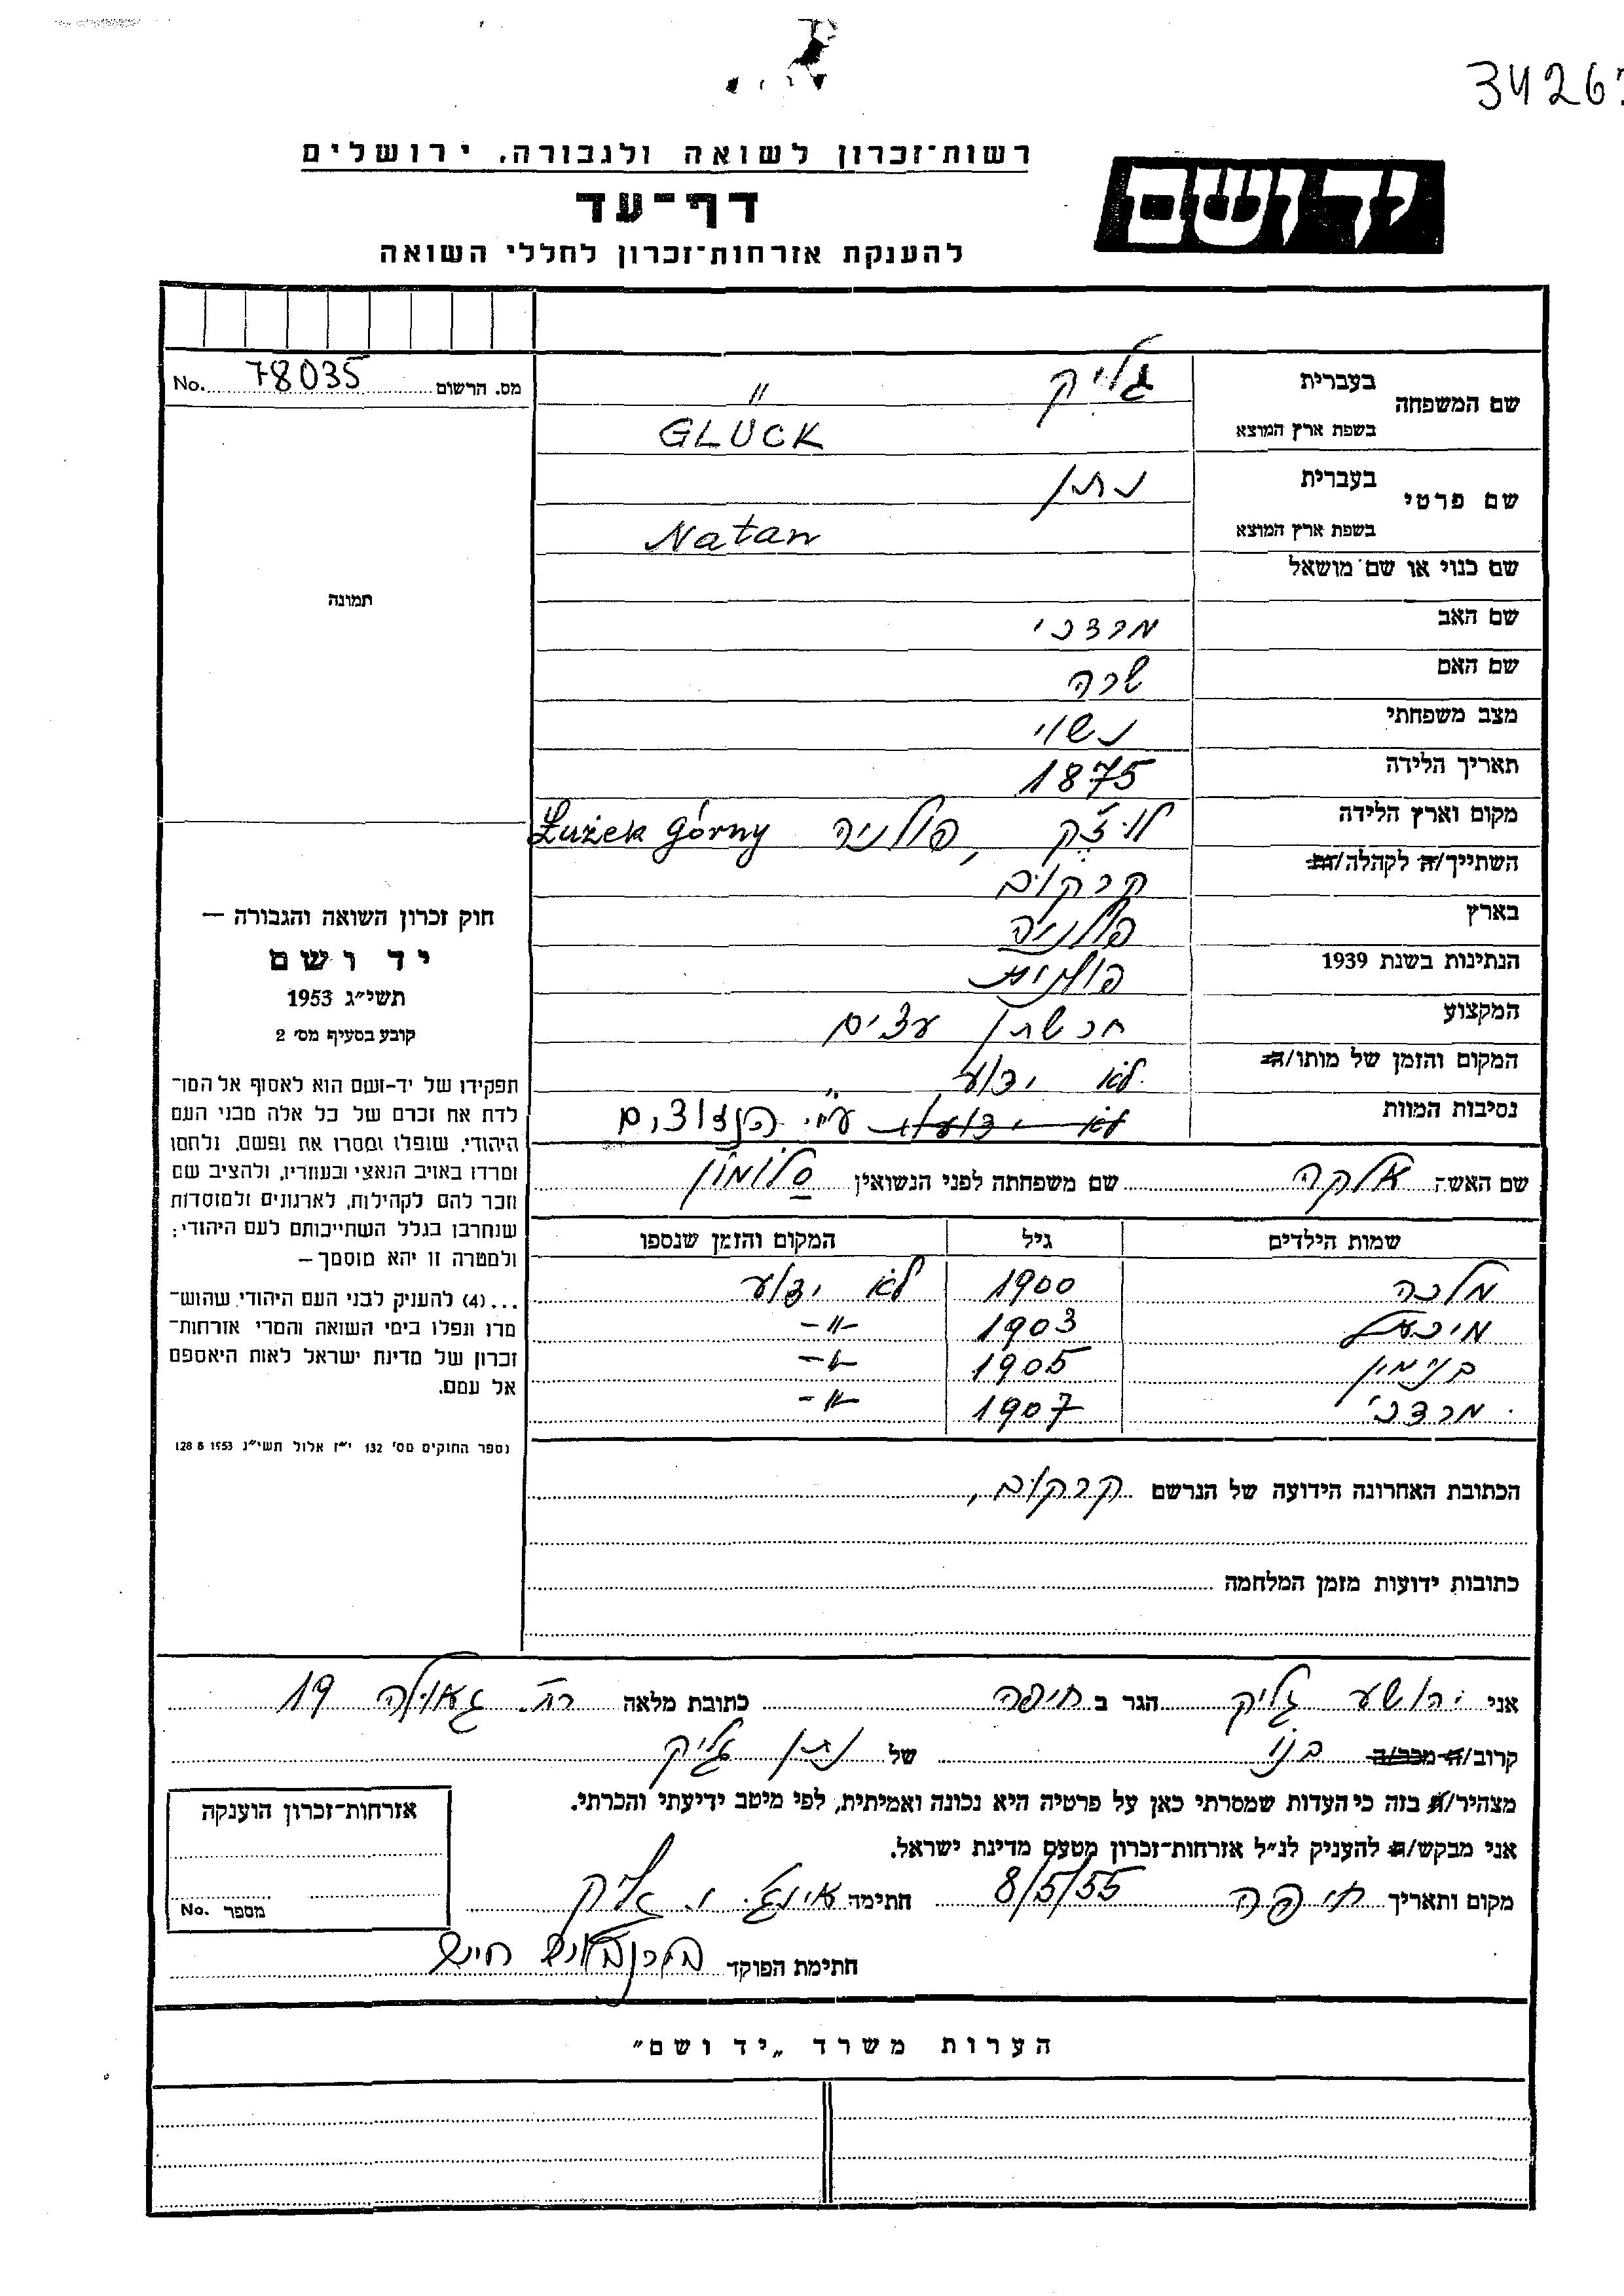 3426
רשות־זכרון לשואה ולגבורה, ירושלים
יד ושם
דף־עד
להענקת אזרחות־זכרון לחללי השואה
מס. הרשום 78035 No.
שם המשפחה
בעברית גליק
בשפת ארץ המוצא GLÜCK
שם פרטי
בעברית נתן
בשפת ארץ המוצא Natan
שם כנוי או שם מושאל
שם האב מרדכי
שם האם שרה
מצב משפחתי נשוי
תאריך הלידה 1875
מקום וארץ הלידה לוז'ק, פולניה Łużek Górny
השתייך/ה לקהלה/ות קרקוב
בארץ פולניה
הנתינות בשנת 1939 פולנית
המקצוע חרשתן עצים
המקום והזמן של מותו/ה לא ידוע
נסיבות המוות לא ידועות ע"י הנאצים
שם האשה אלקה שם משפחתה לפני הנשואין סלומון
שמות הילדים גיל המקום והזמן שנספו
מלכה 1900 לא ידוע
מיכאל 1903 -"-
בנימין 1905 -"-
מרדכי 1907 -"-
הכתובת האחרונה הידועה של הנרשם קרקוב,
כתובות ידועות מזמן המלחמה
תמונה
חוק זכרון השואה והגבורה —
יד ושם
תשי״ג 1953
קובע בסעיף מס׳ 2
תפקידו של יד-ושם הוא לאסוף אל המו־
לדת את זכרם של כל אלה מבני העם
היהודי, שנפלו ומסרו את נפשם, נלחמו
ומרדו באויב הנאצי ובעוזריו, ולהציב שם
וזכר להם לקהילות, לארגונים ולמוסדות
שנחרבו בגלל השתייכותם לעם היהודי;
ולמטרה זו יהא מוסמך—
...(4) להעניק לבני העם היהודי שהוש־
מדו ונפלו בימי השואה והמרי אזרחות־
זכרון של מדינת ישראל לאות היאספם
אל עמם.
נספר החוקים מס׳ 132 י״ז אלול תשי״ג 28 8 1953
אני יהושע גליק הגר ב חיפה כתובת מלאה רח. גאולה 19
קרוב/ה מכר/ה בנו של נתן גליק
מצהיר/ה בזה כי העדות שמסרתי כאן על פרטיה היא נכונה ואמיתית, לפי מיטב ידיעתי והכרתי.
אני מבקש/ת להעניק לנ״ל אזרחות־זכרון מטעם מדינת ישראל.
מקום ותאריך חיפה 8/5/55 חתימה אינג'. י. גליק
חתימת הפוקד חיים
אזרחות־זכרון הוענקה
מספר No.
הערות משרד „יד ושם״